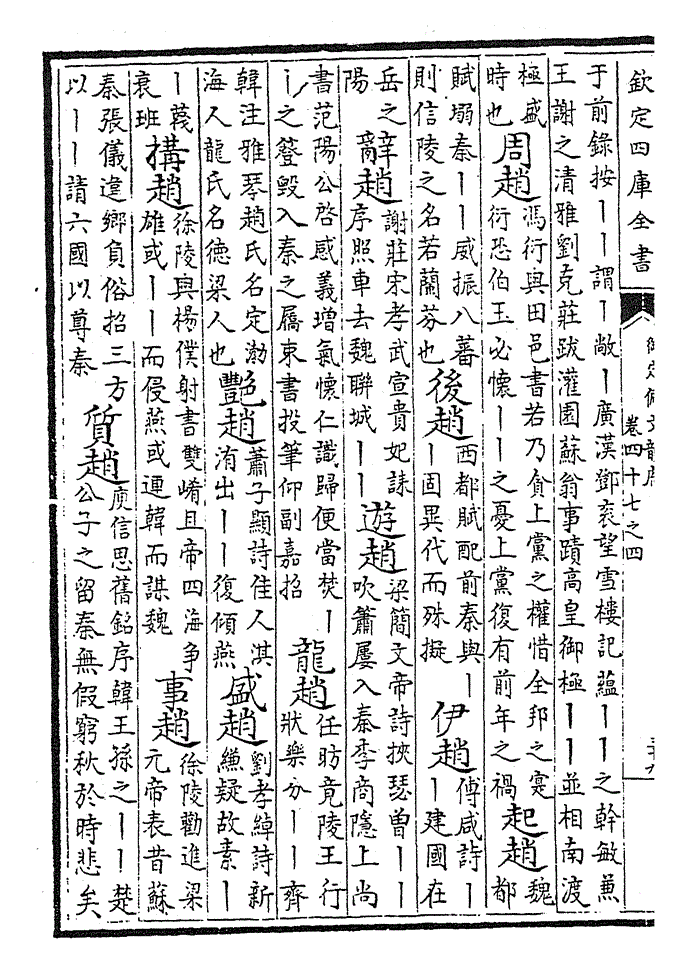 欽定四庫全書
卷四十七之四
于前錄按丨丨謂丨敞丨廣漢鄧衮望雪樓記蘊丨丨之幹敏蒹
王謝之清雅劉克莊跋灌園蘇翁事蹟高皇御極丨丨並相南渡
極盛
時也
周趙
馮衍與田邑書若乃貪上黨之權惜全邦之寔
衍恐伯玉必懷丨丨之憂上黨復有前年之禍
起趙
魏都
賦塥秦丨丨威振八蕃
則信陵之名若蘭芬也
後趙
西都賦配前秦與丨
丨固異代而殊擬
伊趙
傅咸詩丨
丨建國在
岳之
陽
辭趙
謝莊宋孝武宣貴妃誄
序照車去魏聯城丨丨
遊趙
梁簡文帝詩挾瑟曽丨丨
吹簫屢入秦李商隱上尚
書范陽公啓感義增氣懷仁識歸便當焚丨
丨之簦毀入秦之屩束書投筆仰副嘉招
龍趙
任昉竟陵王行
狀樂分丨丨齊
韓注雅琴趙氏名定渤
海人龍氏名德梁人也
艷趙
蕭子顯詩佳人淇
洧出丨丨復傾燕
盛趙
劉孝綽詩新
縑疑故素丨
丨蔑
衰班
搆趙
徐陵與楊僕射書雙崤且帝四海爭
雄或丨丨而侵燕或連韓而謀魏
事趙
徐陵勸進梁
元帝表昔蘇
秦張儀違鄉負俗招三方
以丨丨請六國以尊秦
質趙
庾信思舊銘序韓王孫之丨丨楚
公子之留秦無假窮秋於時悲矣